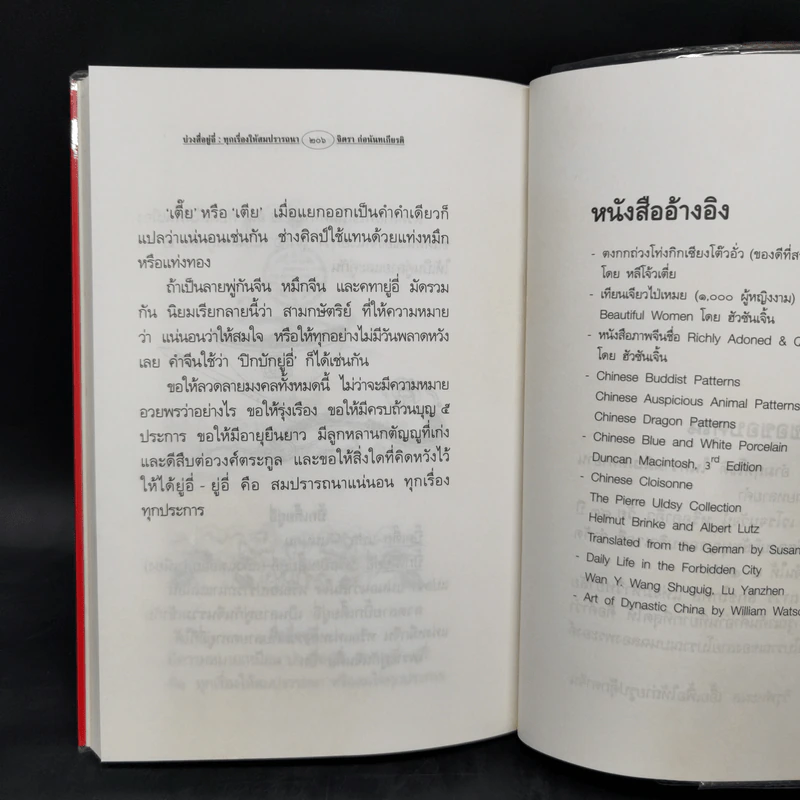 บ่วงสื่อยู่อี่ : ทุกเรื่องให้สมปรารถนา ๒๐๖ จิตรา ก่อนันทเกียรติ
'เตี๊ย' หรือ 'เตีย' เมื่อแยกออกเป็นคำคำเดียวก็
แปลว่าแน่นอนเช่นกัน ช่างศิลป์ใช้แทนด้วยแท่งหมึก
หรือแท่งทอง
ถ้าเป็นลายพู่กันจีน หมึกจีน และคทายู่อี่ มัดรวม
กัน นิยมเรียกลายนี้ว่า สามกษัตริย์ ที่ให้ความหมาย
ว่า แน่นอนว่าให้สมใจ หรือให้ทุกอย่างไม่มีวันพลาดหวัง
เลย คำจีนใช้ว่า 'ปิกบักยู่อี่' ก็ได้เช่นกัน
ขอให้ลวดลายมงคลทั้งหมดนี้ ไม่ว่าจะมีความหมาย
อวยพรว่าอย่างไร ขอให้รุ่งเรือง ขอให้มีครบถ้วนบุญ ๕
ประการ ขอให้มีอายุยืนยาว มีลูกหลานกตัญญูที่เก่ง
และดีสืบต่อวงศ์ตระกูล และขอให้สิ่งใดที่คิดหวังไว้
ให้ได้ยู่อี่ - ยู่อี่ คือ สมปรารถนาแน่นอน ทุกเรื่อง
ทุกประการ
หนังสืออ้างอิง
- ตงกกถ่วงโท่งกิกเซียงโต๊วอั่ว (ของดีที่
โดย หลีโจ้วเตี่ย
- เทียนเจียวไป่เหมย (๑,๐๐๐ ผู้หญิงงาม)
Beautiful Women โดย ฮัวซันเจิ้น
- หนังสือภาพจีนชื่อ Richly Adoned &
โดย ฮัวซันเจิ้น
- Chinese Buddist Patterns
Chinese Auspicious Animal Patterns
Chinese Dragon Patterns
- Chinese Blue and White Porcelain
Duncan Macintosh, 3rd Edition
- Chinese Cloisonne
The Pierre Uldsy Collection
Helmut Brinke and Albert Lutz
Translated from the German by Susan
- Daily Life in the Forbidden City
Wan Y. Wang Shuguig, Lu Yanzhen
- Art of Dynastic China by William